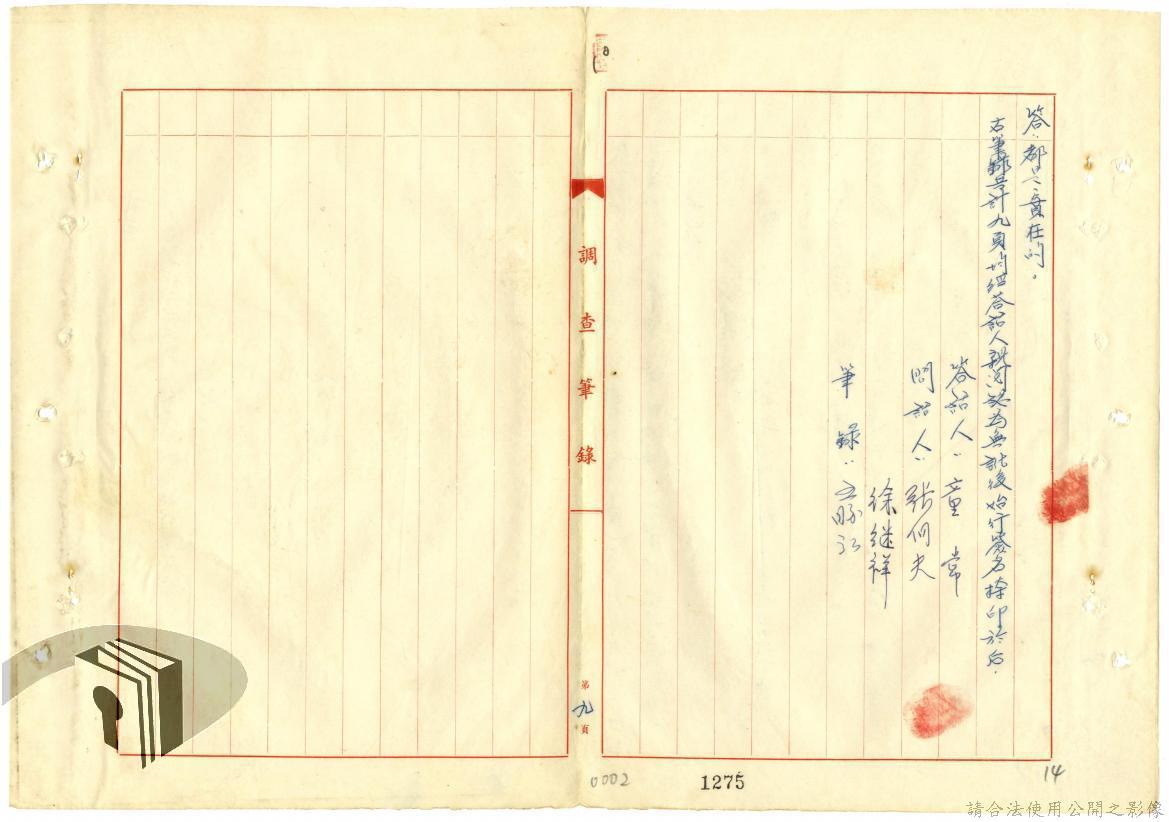 答：都是實在的。
右筆錄共計九頁均經答話人親閱認為無訛後始行簽名捺印於后.
答話人：童 常
問話人：張何夫
徐继祥
筆 錄：
調查筆錄
第九頁
0002
1275
14
請合法使用公開之影像